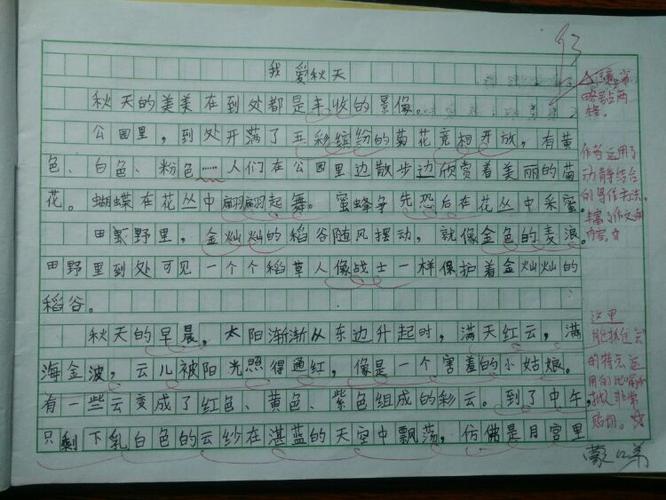 我爱秋天
秋天的美美在到处都是丰收的景像。
公园里，到处开满了五彩缤纷的菊花竞相开放，有黄
色、白色、粉色……人们在公园里边散步边欣赏着美丽的菊
花。蝴蝶在花丛中翩翩起舞。蜜蜂争先恐后在花丛中采蜜。
田野里，金灿灿的稻谷随风摆动，就像金色的麦浪。
田野里到处可见一个个稻草人像战士一样保护着金灿灿的
稻谷。
秋天的早晨，太阳渐渐从东边升起时，满天红云，满
海金波，云儿被阳光照得通红，像是一个害羞的小姑娘。
有一些云变成了红色、黄色、紫色组成的彩云。到了中午，
只剩下乳白色的云纱在湛蓝的天空中飘荡，仿佛是月宫里
省
略号占两
格。
作者运用了
动静结合
的写作方法，
丰富了作文的
内容。
这里
能抓住云
的特点运
用
非常
贴切。